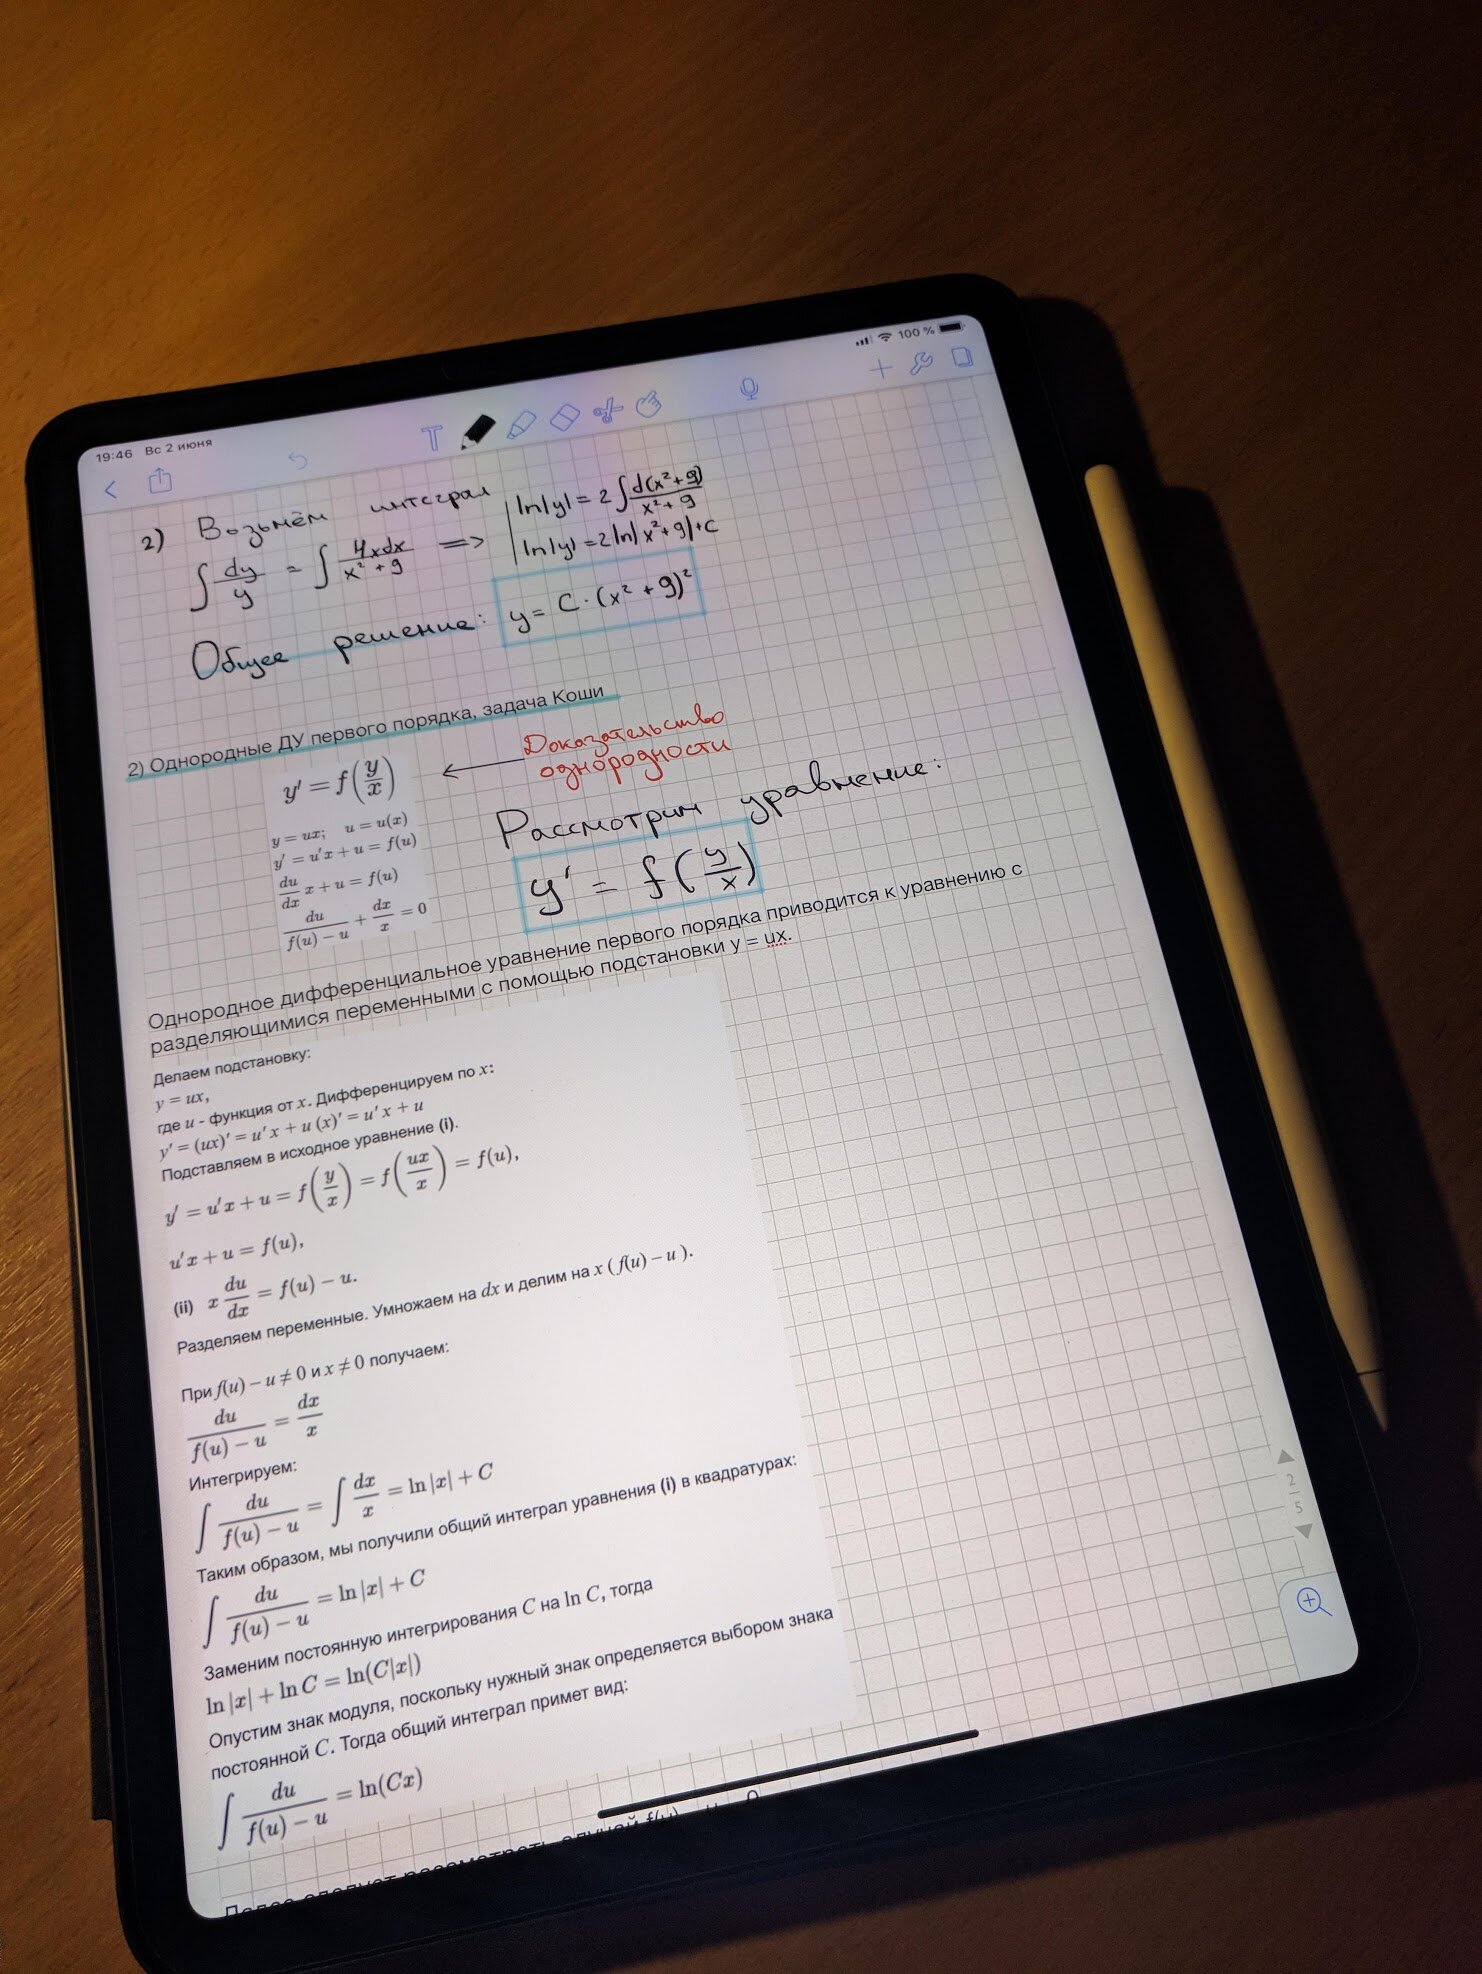 19:46 Вс 2 июня
100 %
2) Возьмём интеграл
∫ dy/y = ∫ 4xdx/(x² + 9) =>
ln|y| = 2 ∫ d(x²+9)/(x² + 9)
ln|y| = 2 ln|x²+9| + C
Общее решение: y = C · (x² + 9)²
2) Однородные ДУ первого порядка, задача Коши
y′ = f(y/x)
y = ux; u = u(x)
y′ = u′x + u = f(u)
du/dx x + u = f(u)
du/(f(u) − u) + dx/x = 0
← Доказательство
однородности
Рассмотрим уравнение:
y′ = f(y/x)
Однородное дифференциальное уравнение первого порядка приводится к уравнению с
разделяющимися переменными с помощью подстановки y = ux.
Делаем подстановку:
y = ux,
где u - функция от x. Дифференцируем по x:
y′ = (ux)′ = u′ x + u (x)′ = u′ x + u
Подставляем в исходное уравнение (i).
y′ = u′x + u = f(y/x) = f(ux/x) = f(u),
u′x + u = f(u),
(ii) x du/dx = f(u) − u.
Разделяем переменные. Умножаем на dx и делим на x ( f(u) − u ).
При f(u) − u ≠ 0 и x ≠ 0 получаем:
du/(f(u) − u) = dx/x
Интегрируем:
∫ du/(f(u) − u) = ∫ dx/x = ln |x| + C
Таким образом, мы получили общий интеграл уравнения (i) в квадратурах:
∫ du/(f(u) − u) = ln |x| + C
Заменим постоянную интегрирования C на ln C, тогда
ln |x| + ln C = ln(C|x|)
Опустим знак модуля, поскольку нужный знак определяется выбором знака
постоянной C. Тогда общий интеграл примет вид:
∫ du/(f(u) − u) = ln(Cx)
Далее следует рассмотреть случай f(u) − u = 0
2
5